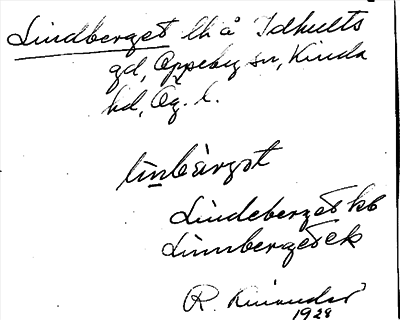 Lindberget lh å Idhults
gd, Oppeby sn, Kinda
hd, Ög. l.
linbärget
Lindeberget kb
Linnberget ek
R.
1928